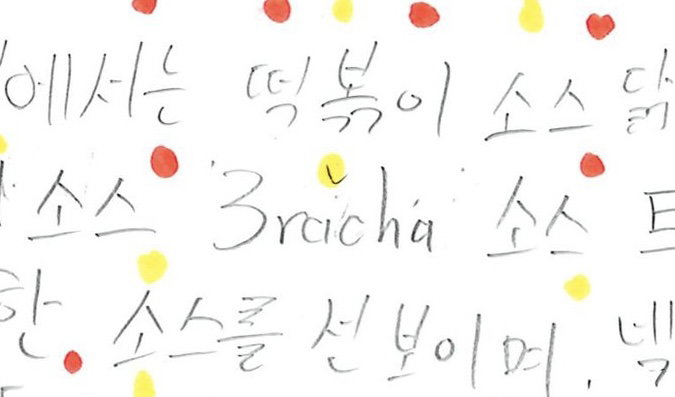 에서는 떡볶이 소스 닭
소스 '3racha' 소스
한 소스를 선보이며, 넥